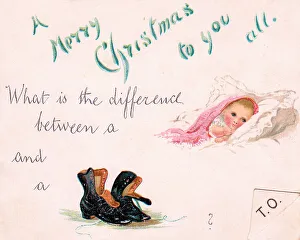 A Merry Christmas to you all.
What is the difference
between a
and
a
?
T.O.